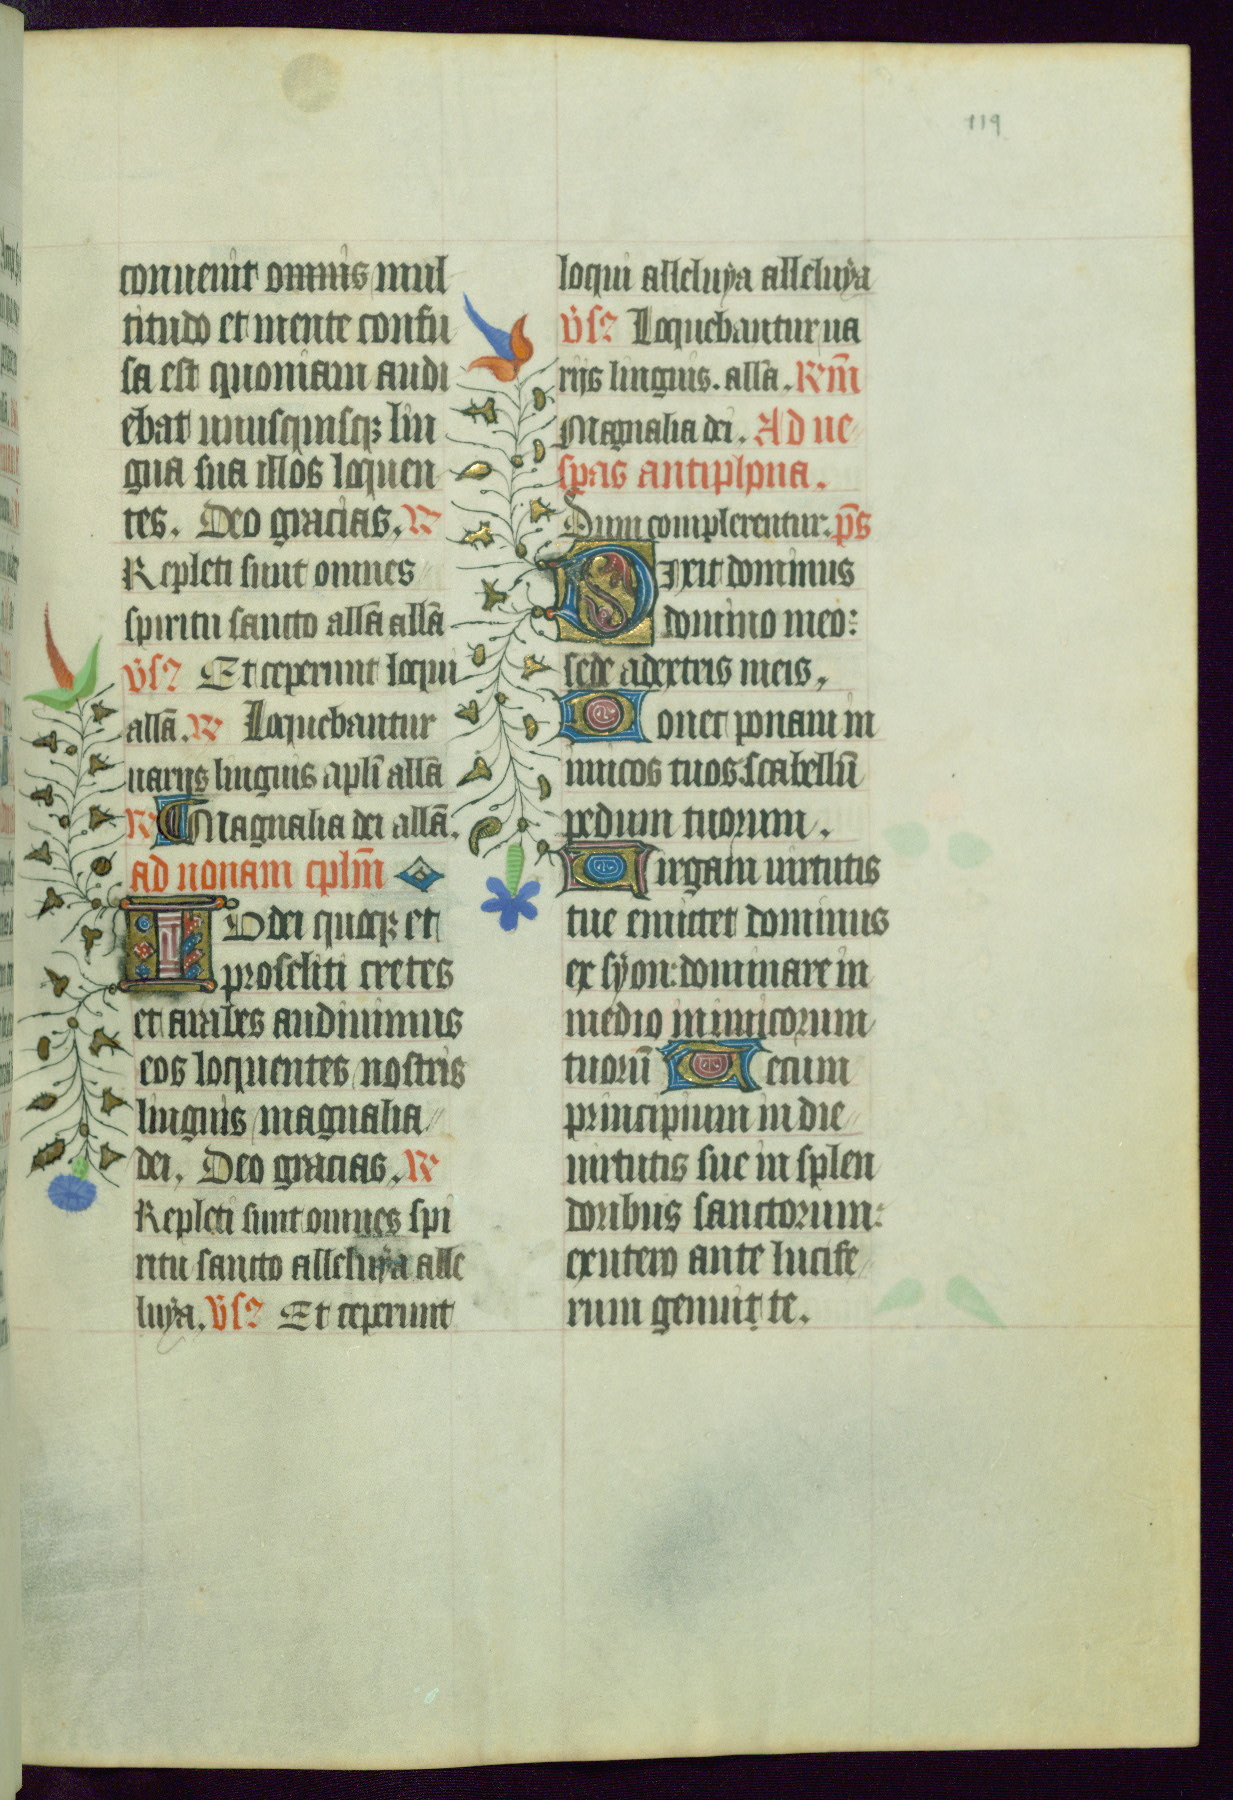 119
conuenit omnis mul
titudo et mente confu
sa est quoniam audi
ebat unusquisqꝫ lin
gua sua illos loquen
tes. Deo gracias. R
Repleti sunt omnes
spiritu sancto allā allā
v̄s Et ceperunt loqui
allā. R Loquebantur
uarijs linguis apl̄i allā
R Magnalia dei allā.
ad nonam cplm̄
Iudei quoqꝫ et
proseliti cretes
et arabes audiuimus
eos loquentes nostris
linguis magnalia
dei. Deo gracias. R
Repleti sunt omnes spi
ritu sancto alleluÿa alle
luÿa. v̄s Et ceperunt
loqui alleluÿa alleluÿa
v̄s Loquebantur ua
rijs linguis. allā. Rm̄
Magnalia dei. Ad ue
spas antiphona.
Dum complerentur. p̄s
Dixit dominus
domino meo:
sede adextris meis.
Donec ponam in
imicos tuos: scabellū
pedum tuorum.
Virgam uirtutis
tue emittet dominus
ex sÿon: dominare in
medio inimicorum
tuorū Tecum
principium in die
uirtutis sue in splen
doribus sanctorum:
exutero ante lucife
rum genuit te.